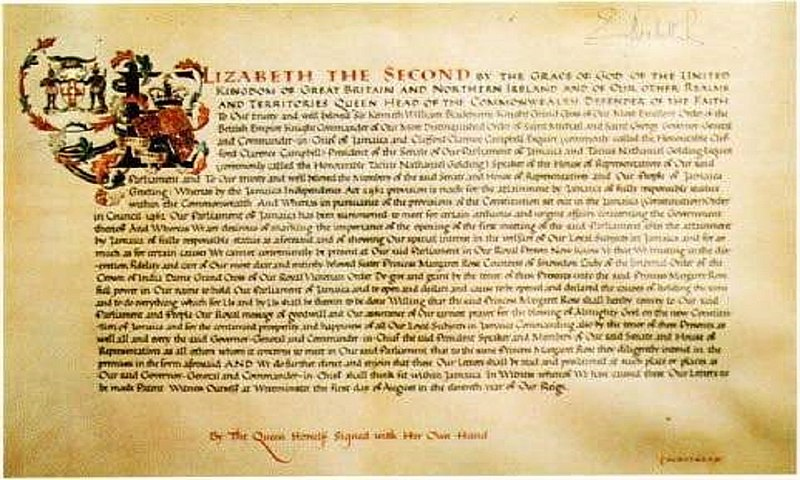 Elizabeth R
ELIZABETH THE SECOND BY THE GRACE OF GOD OF THE UNITED
KINGDOM OF GREAT BRITAIN AND NORTHERN IRELAND AND OF OUR OTHER REALMS
AND TERRITORIES QUEEN HEAD OF THE COMMONWEALTH DEFENDER OF THE FAITH
To Our trusty and well beloved Sir Kenneth William Blackburne Knight Grand Cross of Our Most Excellent Order of the
British Empire Knight Commander of Our Most Distinguished Order of Saint Michael and Saint George Governor-General
and Commander-in-Chief of Jamaica and Clifford Clarence Campbell Esquire (commonly called the Honourable Clif-
ford Clarence Campbell) President of the Senate of Our Parliament of Jamaica and Tacius Nathaniel Golding Esquire
(commonly called the Honourable Tacius Nathaniel Golding) Speaker of the House of Representatives of Our said
Parliament and To Our trusty and well beloved the Members of the said Senate and House of Representatives and Our People of Jamaica
Greeting: Whereas by the Jamaica Independence Act 1962 provision is made for the attainment by Jamaica of fully responsible status
within the Commonwealth And Whereas in pursuance of the provisions of the Constitution set out in the Jamaica (Constitution) Order
in Council 1962 Our Parliament of Jamaica has been summoned to meet for certain arduous and urgent affairs concerning the Government
thereof And Whereas We are desirous of marking the importance of the opening of the first meeting of the said Parliament after the attainment
by Jamaica of fully responsible status as aforesaid and of showing Our special interest in the welfare of Our Loyal Subjects in Jamaica and for as-
much as for certain causes We cannot conveniently be present at Our said Parliament in Our Royal Person Now Know Ye that We trusting in the dis-
cretion fidelity and care of Our most dear and entirely beloved Sister Princess Margaret Rose Countess of Snowdon Lady of the Imperial Order of the
Crown of India Dame Grand Cross of Our Royal Victorian Order Do give and grant by the tenor of these Presents unto the said Princess Margaret Rose
full power in Our name to hold Our Parliament of Jamaica and to open and declare and cause to be opened and declared the causes of holding the same
and to do everything which for Us and by Us shall be therein to be done Willing that the said Princess Margaret Rose shall hereby convey to Our said
Parliament and People Our Royal message of goodwill and Our assurance of Our earnest prayer for the blessing of Almighty God on the new Constitu-
tion of Jamaica and for the continued prosperity and happiness of all Our Loyal Subjects in Jamaica Commanding also by the tenor of these Presents as
well all and every the said Governor-General and Commander-in-Chief the said President Speaker and Members of Our said Senate and House of
Representatives as all others whom it concerns to meet in Our said Parliament that to the same Princess Margaret Rose they diligently intend in the
premises in the form aforesaid AND We do further direct and enjoin that these Our Letters shall be read and proclaimed at such place or places as
Our said Governor-General and Commander-in-Chief shall think fit within Jamaica In Witness whereof We have caused these Our Letters to
be made Patent Witness Ourself at Westminster the first day of August in the eleventh year of Our Reign
By The Queen Herself Signed with Her Own Hand